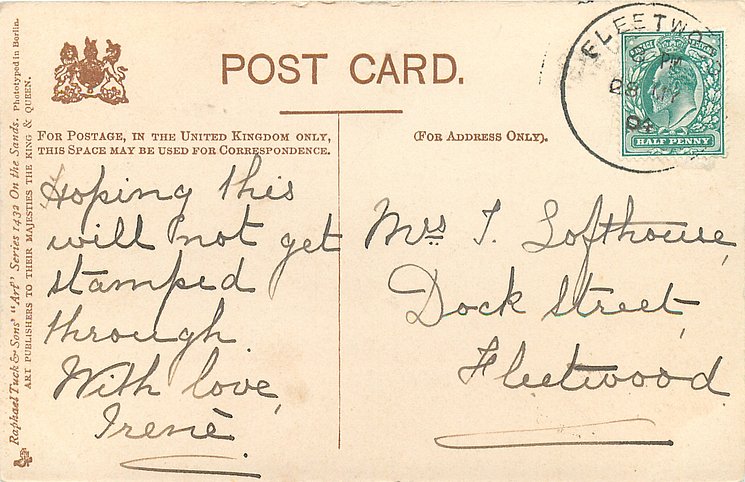 POST CARD.
FOR POSTAGE, IN THE UNITED KINGDOM ONLY,
THIS SPACE MAY BE USED FOR CORRESPONDENCE.
(FOR ADDRESS ONLY).
Hoping this
will not get
stamped
through
With love,
Irenè
Mrs T. Lofthouse,
Dock Street,
Fleetwood
FLEETWO
6 PM
28
04
HALF PENNY
Raphael Tuck & Sons' "Art" Series 1432 On the Sands. Phototyped in Berlin.
ART PUBLISHERS TO THEIR MAJESTIES THE KING & QUEEN.